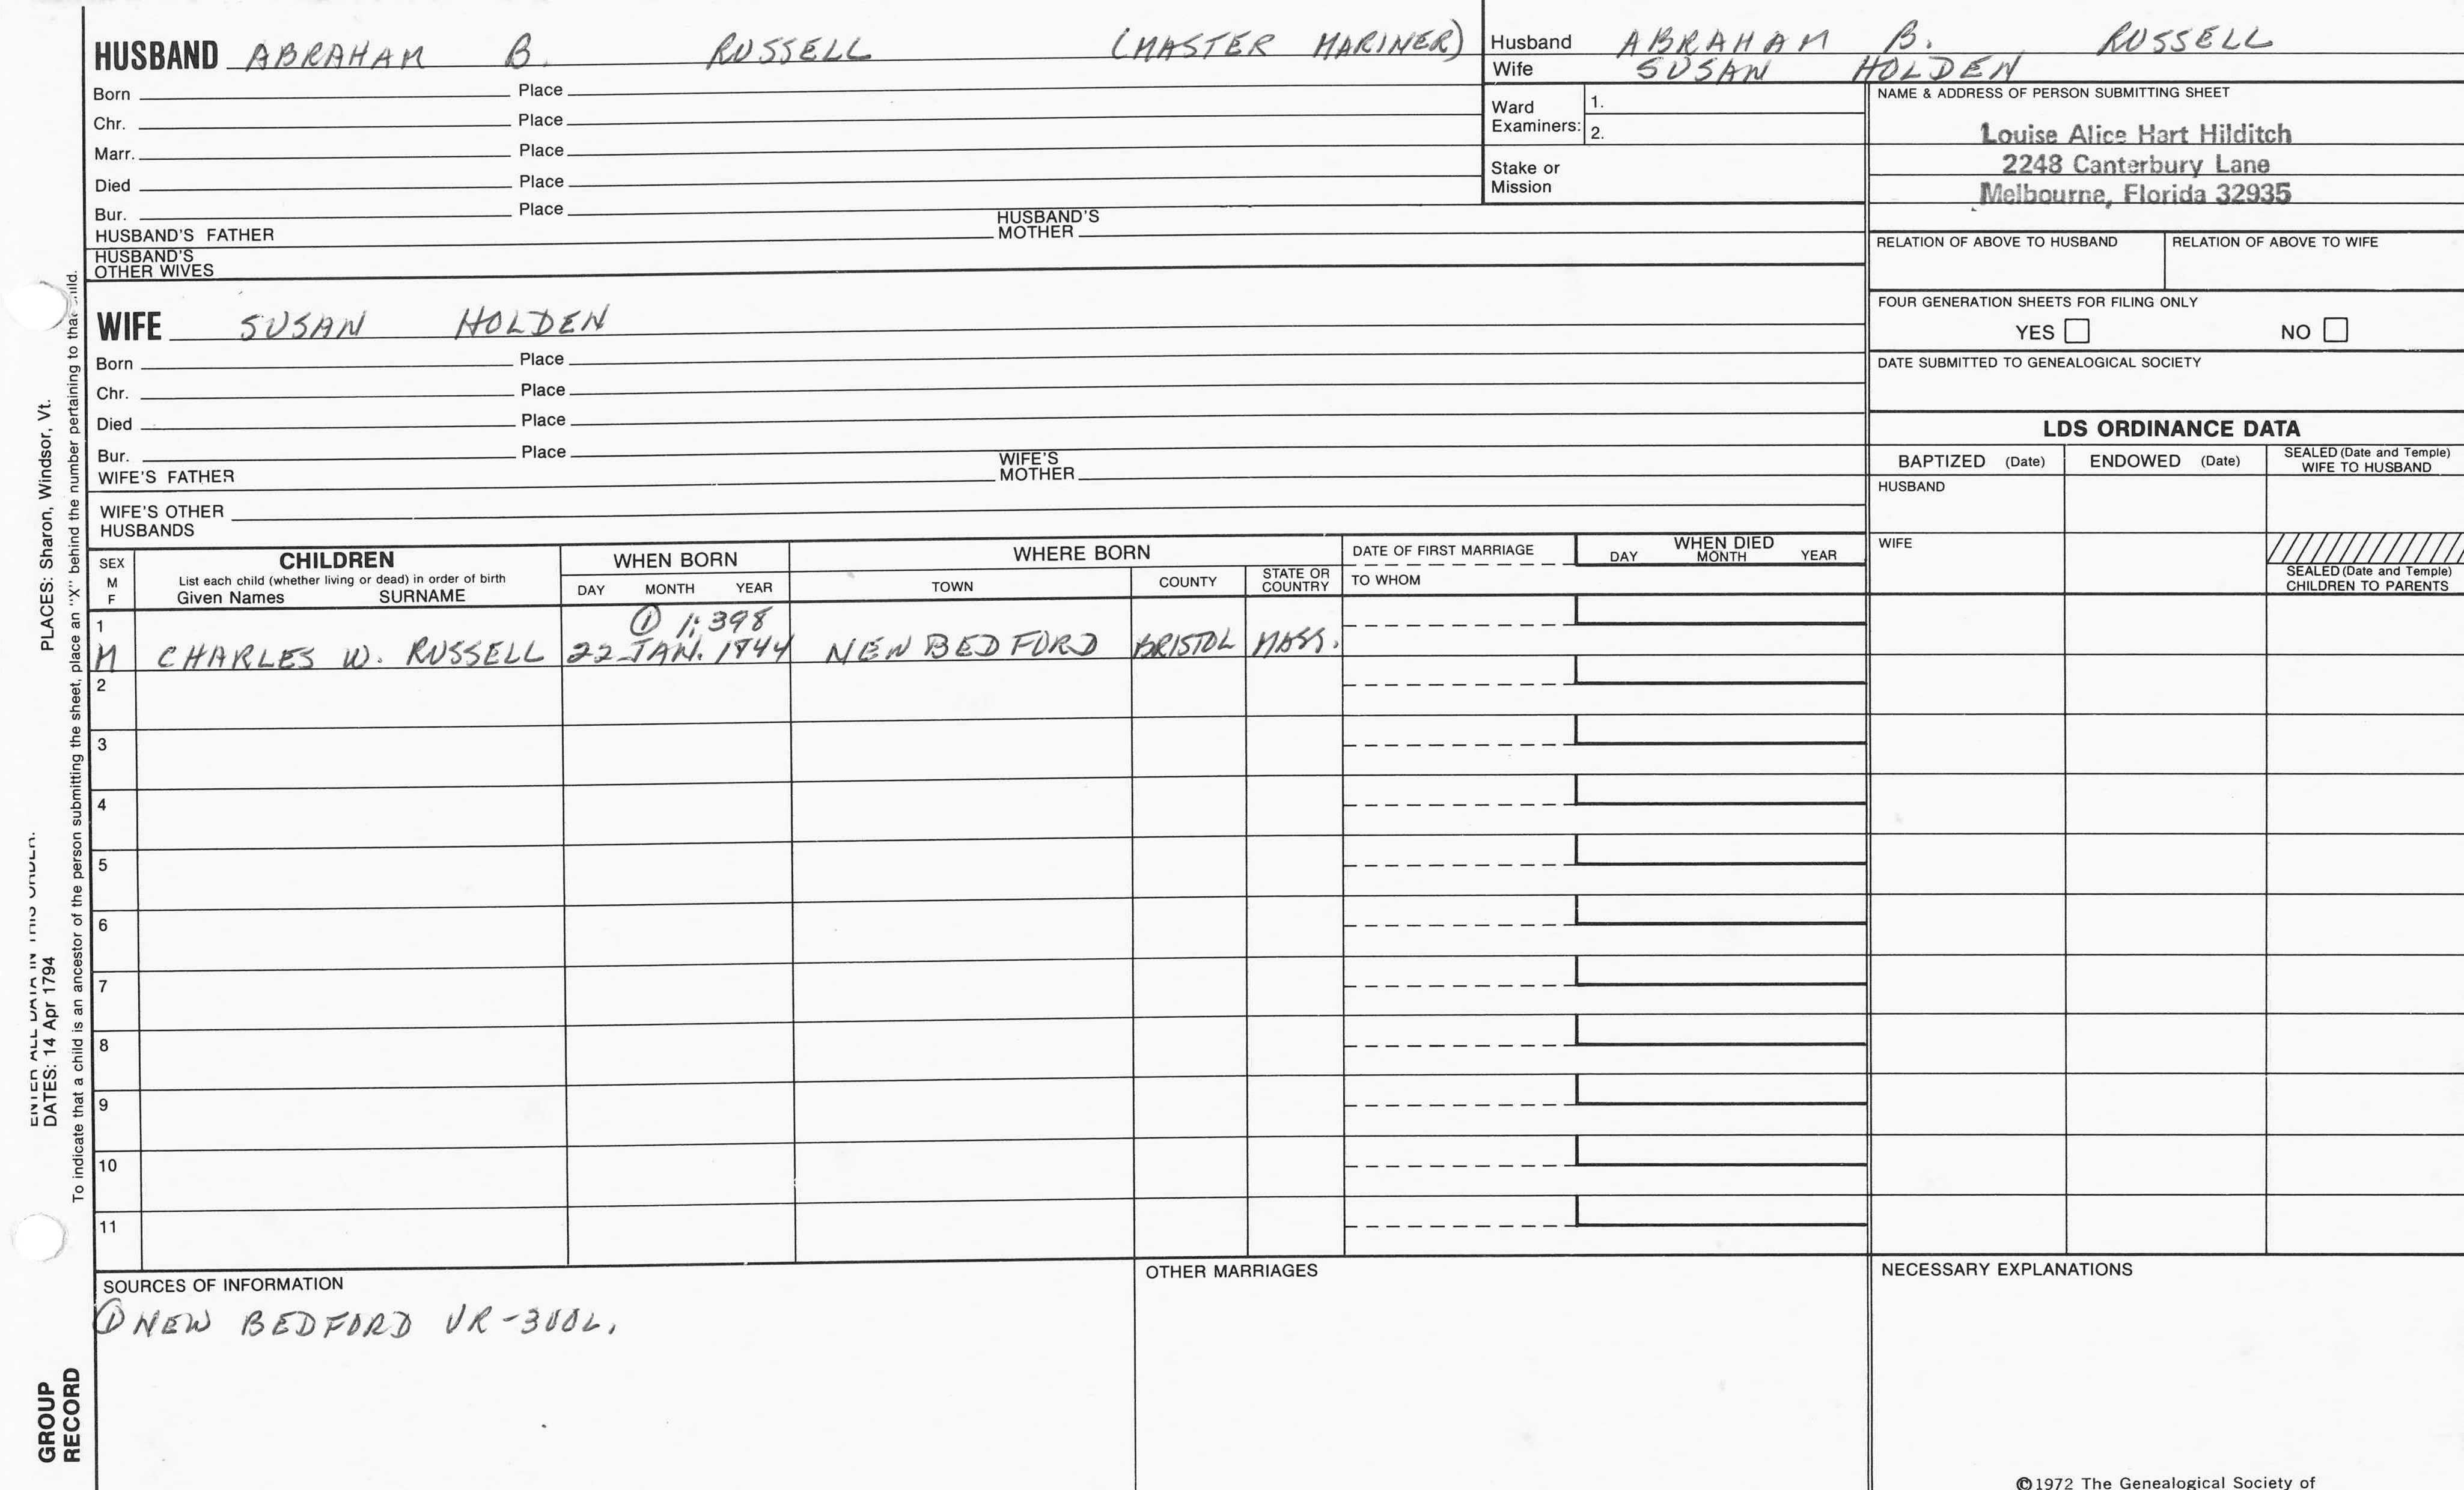 HUSBAND ABRAHAM B. RUSSELL (MASTER MARINER)
Born Place
Chr. Place
Marr. Place
Died Place
Bur. Place
HUSBAND'S FATHER HUSBAND'S MOTHER
HUSBAND'S OTHER WIVES
WIFE SUSAN HOLDEN
Born Place
Chr. Place
Died Place
Bur. Place
WIFE'S FATHER WIFE'S MOTHER
WIFE'S OTHER HUSBANDS
Husband ABRAHAM B. RUSSELL
Wife SUSAN HOLDEN
Ward Examiners: 1.
2.
Stake or Mission
NAME & ADDRESS OF PERSON SUBMITTING SHEET
Louise Alice Hart Hilditch
2248 Canterbury Lane
Melbourne, Florida 32935
RELATION OF ABOVE TO HUSBAND RELATION OF ABOVE TO WIFE
FOUR GENERATION SHEETS FOR FILING ONLY
YES NO
DATE SUBMITTED TO GENEALOGICAL SOCIETY
LDS ORDINANCE DATA
BAPTIZED (Date) ENDOWED (Date) SEALED (Date and Temple) WIFE TO HUSBAND
HUSBAND
WIFE
SEALED (Date and Temple) CHILDREN TO PARENTS
SEX M F
CHILDREN
List each child (whether living or dead) in order of birth
Given Names SURNAME
WHEN BORN
DAY MONTH YEAR
WHERE BORN
TOWN COUNTY STATE OR COUNTRY
DATE OF FIRST MARRIAGE
TO WHOM
WHEN DIED
DAY MONTH YEAR
1 ① 1:398
M CHARLES W. RUSSELL 22 JAN. 1844 NEW BEDFORD BRISTOL MASS.
2
3
4
5
6
7
8
9
10
11
SOURCES OF INFORMATION
① NEW BEDFORD VR-
OTHER MARRIAGES
NECESSARY EXPLANATIONS
©1972 The Genealogical Society of
PLACES: Sharon, Windsor, Vt.
ENTER ALL DATA IN THIS ORDER:
DATES: 14 Apr 1794
To indicate that a child is an ancestor of the person submitting the sheet, place an "X" behind the number pertaining to that child.
GROUP
RECORD